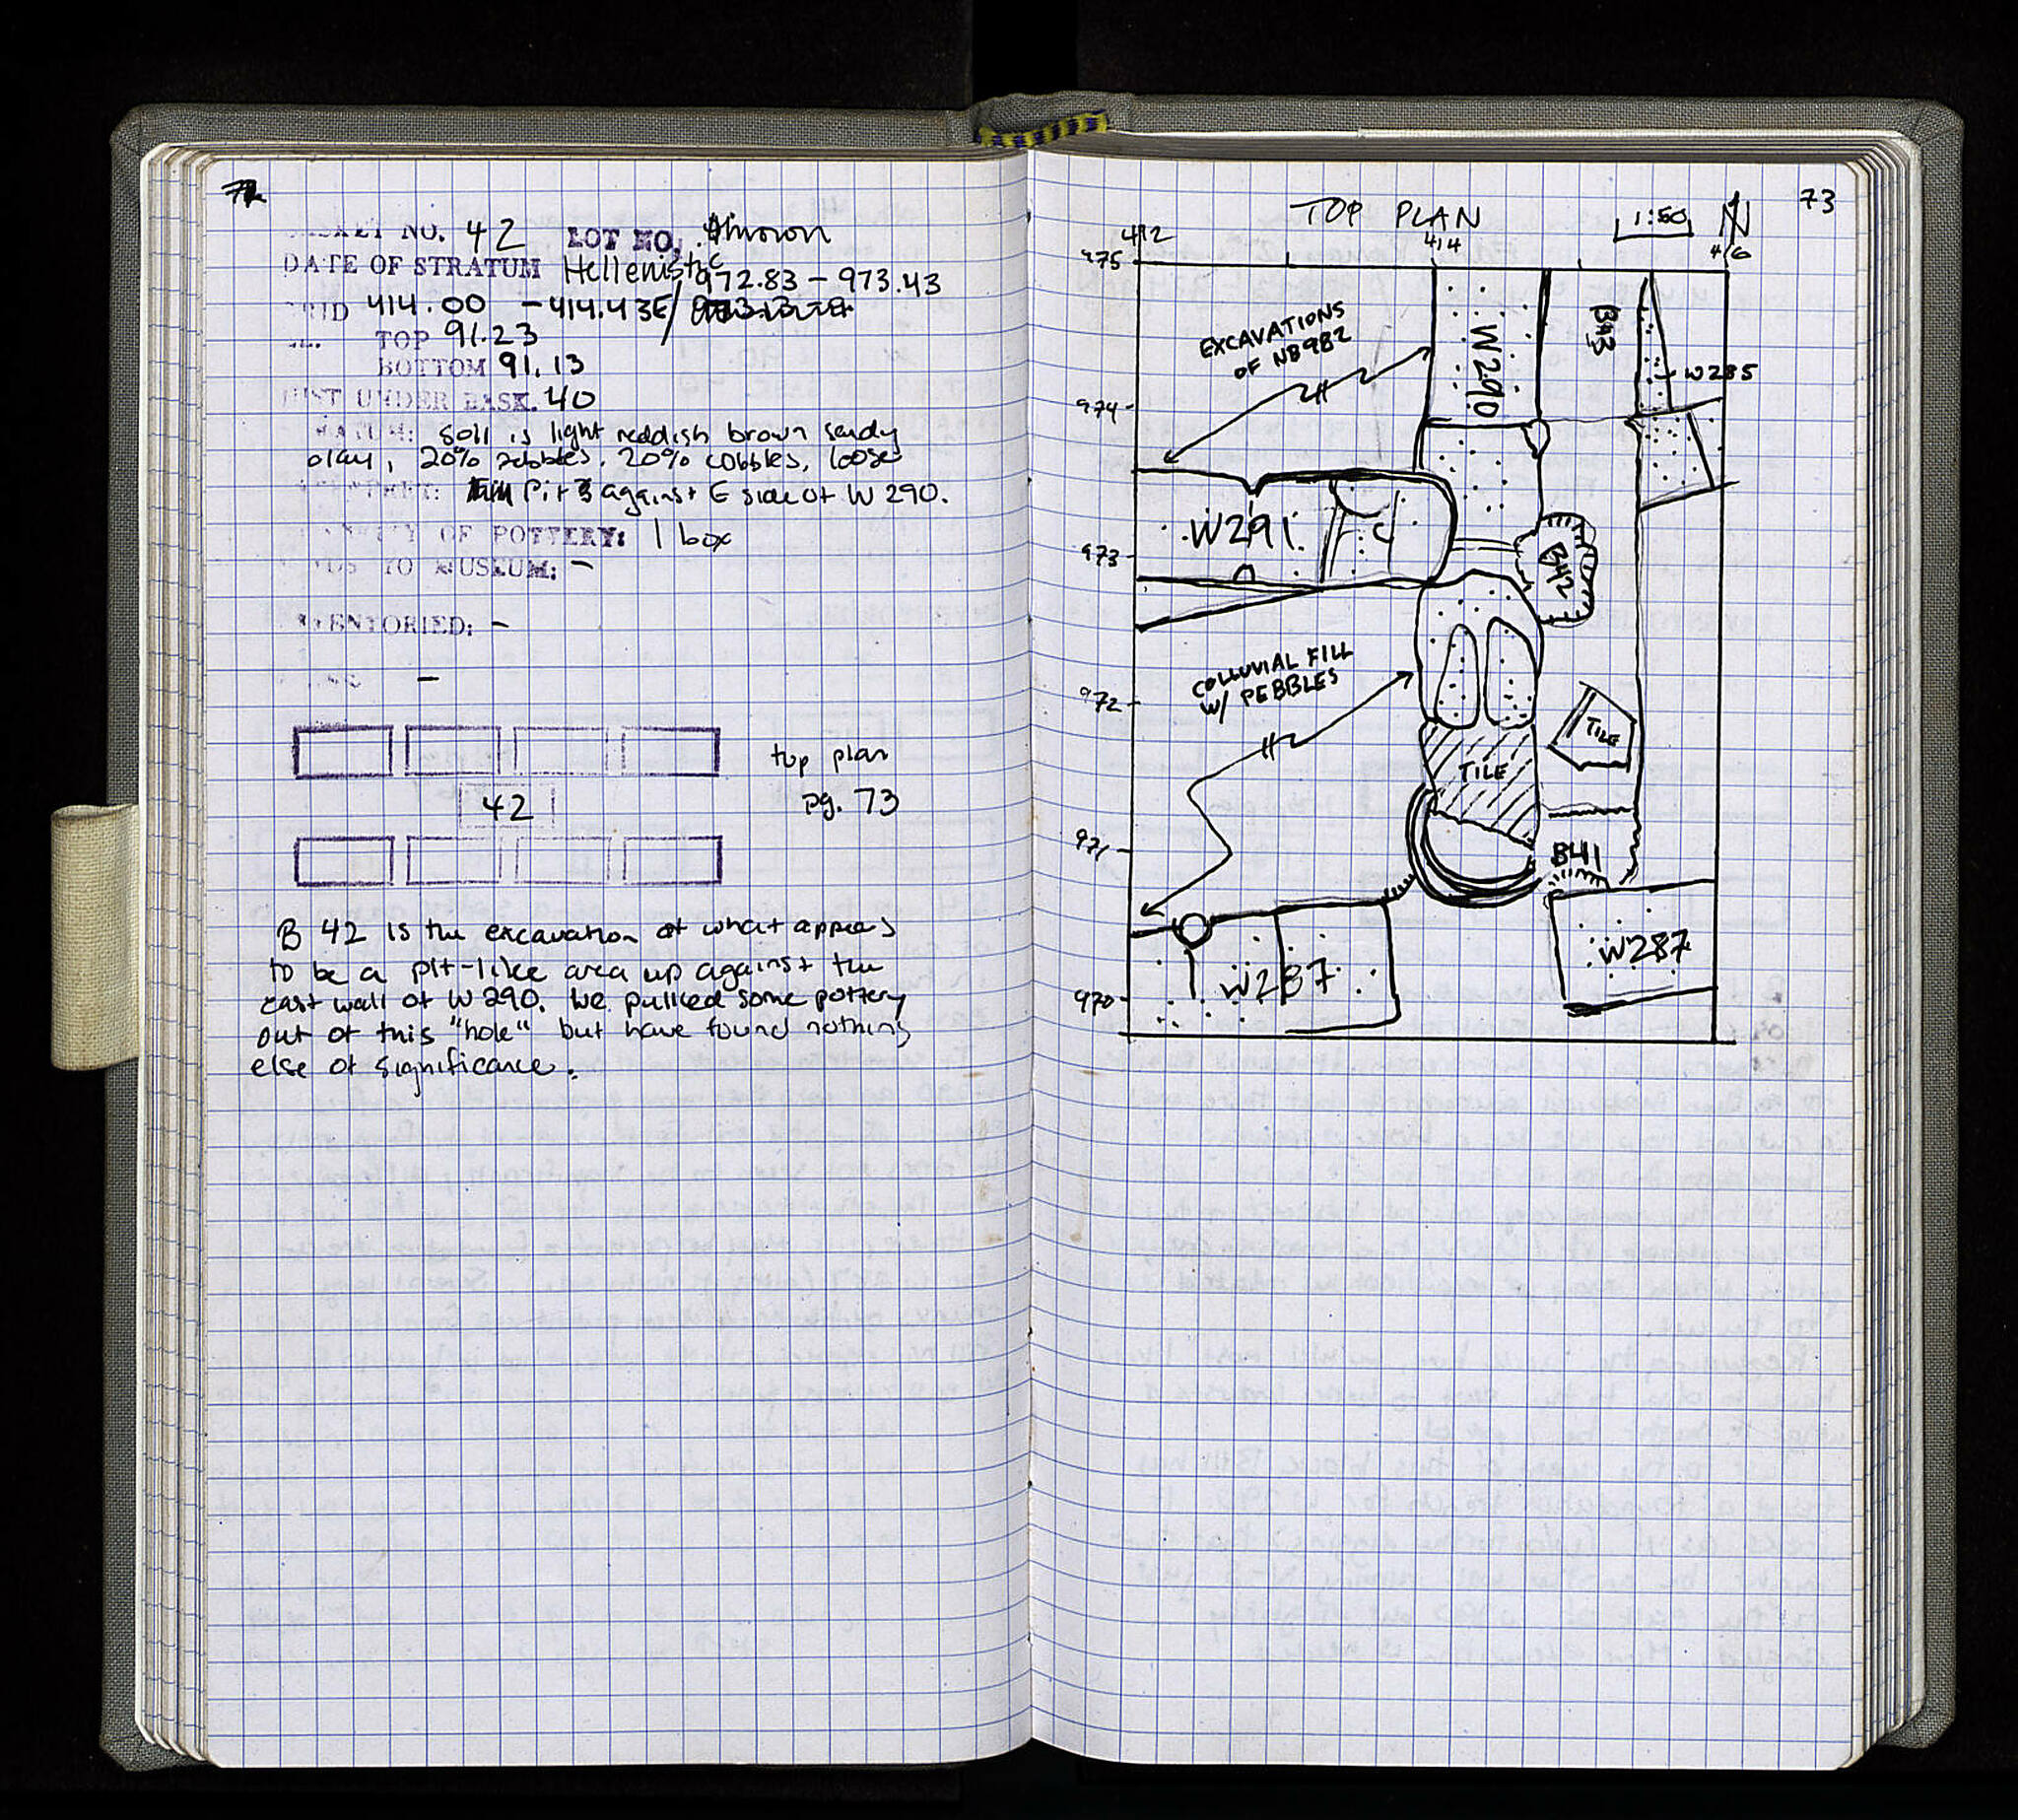 72
BASKET NO. 42 LOT NO. thrown
DATE OF STRATUM Hellenistic
972.83 - 973.43
GRID 414.00 - 414.43E/
TOP 91.23
BOTTOM 91.13
JUST UNDER BASK. 40
STRATUM: soil is light reddish brown sandy
clay, 20% pebbles, 20% cobbles, loose
Pit against E side of W 290.
QUANTITY OF POTTERY: 1 box
FINDS TO MUSEUM: -
INVENTORIED: -
-
top plan
42 pg. 73
B 42 is the excavation of what appears
to be a pit-like area up against the
east wall of W 290. We pulled some pottery
out of this "hole" but have found nothing
else of significance.
73
TOP PLAN
1:50 N
412 414 416
975
EXCAVATIONS
OF NB982
W290
B43
W285
974
W291
C
973
B42
COLLUVIAL FILL
W/ PEBBLES
972
TILE
TILE
971
B41
W287
W287
970